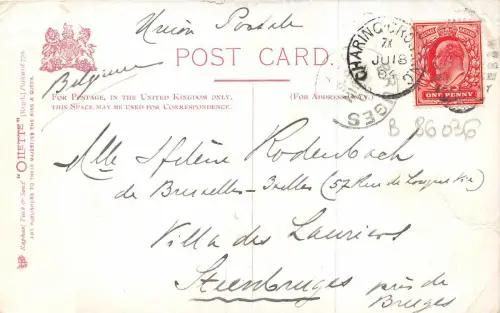 Union Postale
POST CARD.
Belgium
FOR POSTAGE, IN THE UNITED KINGDOM ONLY,
THIS SPACE MAY BE USED FOR CORRESPONDENCE.
(FOR ADDRESS
CHARING CROSS
JU 18
ONE PENNY
B 86036
Mlle Hélène Rodenbach
de Bruxelles-Ixelles (57 Rue de Longue Vie)
Villa des Lauriers
Steenbruges
près de
Bruges
Raphael Tuck & Sons' "OILETTE" [Regd.] Postcard
ART PUBLISHERS TO THEIR MAJESTIES THE KING & QUEEN.